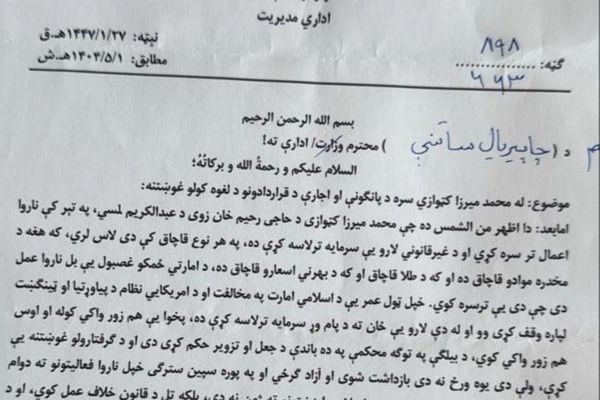 اداري مدیریت
نېټه: ۱۴۴۷/۱/۲۷هـ.ق
مطابق: ۱۴۰۴/۵/۱هـ.ش
ګڼه: ۸۹۸
۶۶۳
بسم الله الرحمن الرحیم
د (چاپیریال ساتنې) محترم وزارت/ ادارې ته!
السلام علیکم و رحمة الله و برکاتُهُ؛
موضوع: له محمد میرزا کټوازي سره د پانګونې او اجارې د قراردادونو د لغوه کولو غوښتنه:
امابعد: دا اظهر من الشمس ده چې محمد میرزا کټوازی د حاجي رحیم خان زوی د عبدالکریم لمسي، په تېر کې ناروا
اعمال تر سره کړي او د غیرقانوني لارو یې سرمایه ترلاسه کړې ده، په هر نوع قاچاق کې دی لاس لري، که هغه د
مخدره موادو قاچاق ده او که د طلا قاچاق او که د بهرني اسعارو قاچاق ده، د امارتي ځمکو غصبول یې بل ناروا عمل
دی چې دی یې ترسره کوي. خپل ټول عمر یې د اسلامي امارت په مخالفت او د امریکایي نظام د پیاوړتیا او ټینګښت
لپاره وقف کړی وو او له دې لارو یې ځان ته د پام وړ سرمایه ترلاسه کړې ده، پخوا یې هم زور واکي کوله او اوس
هم زور واکي کوي، د بېلګې په توګه محکمې په ده باندې د جعل او تزویر حکم کړی دی او د ګرفتارولو غوښتنه یې
کړې، ولې دی یوه ورځ نه دی بازداشت شوی او آزاد ګرځي او په پوره سپین سترګۍ خپل ناروا فعالیتونو ته دوام